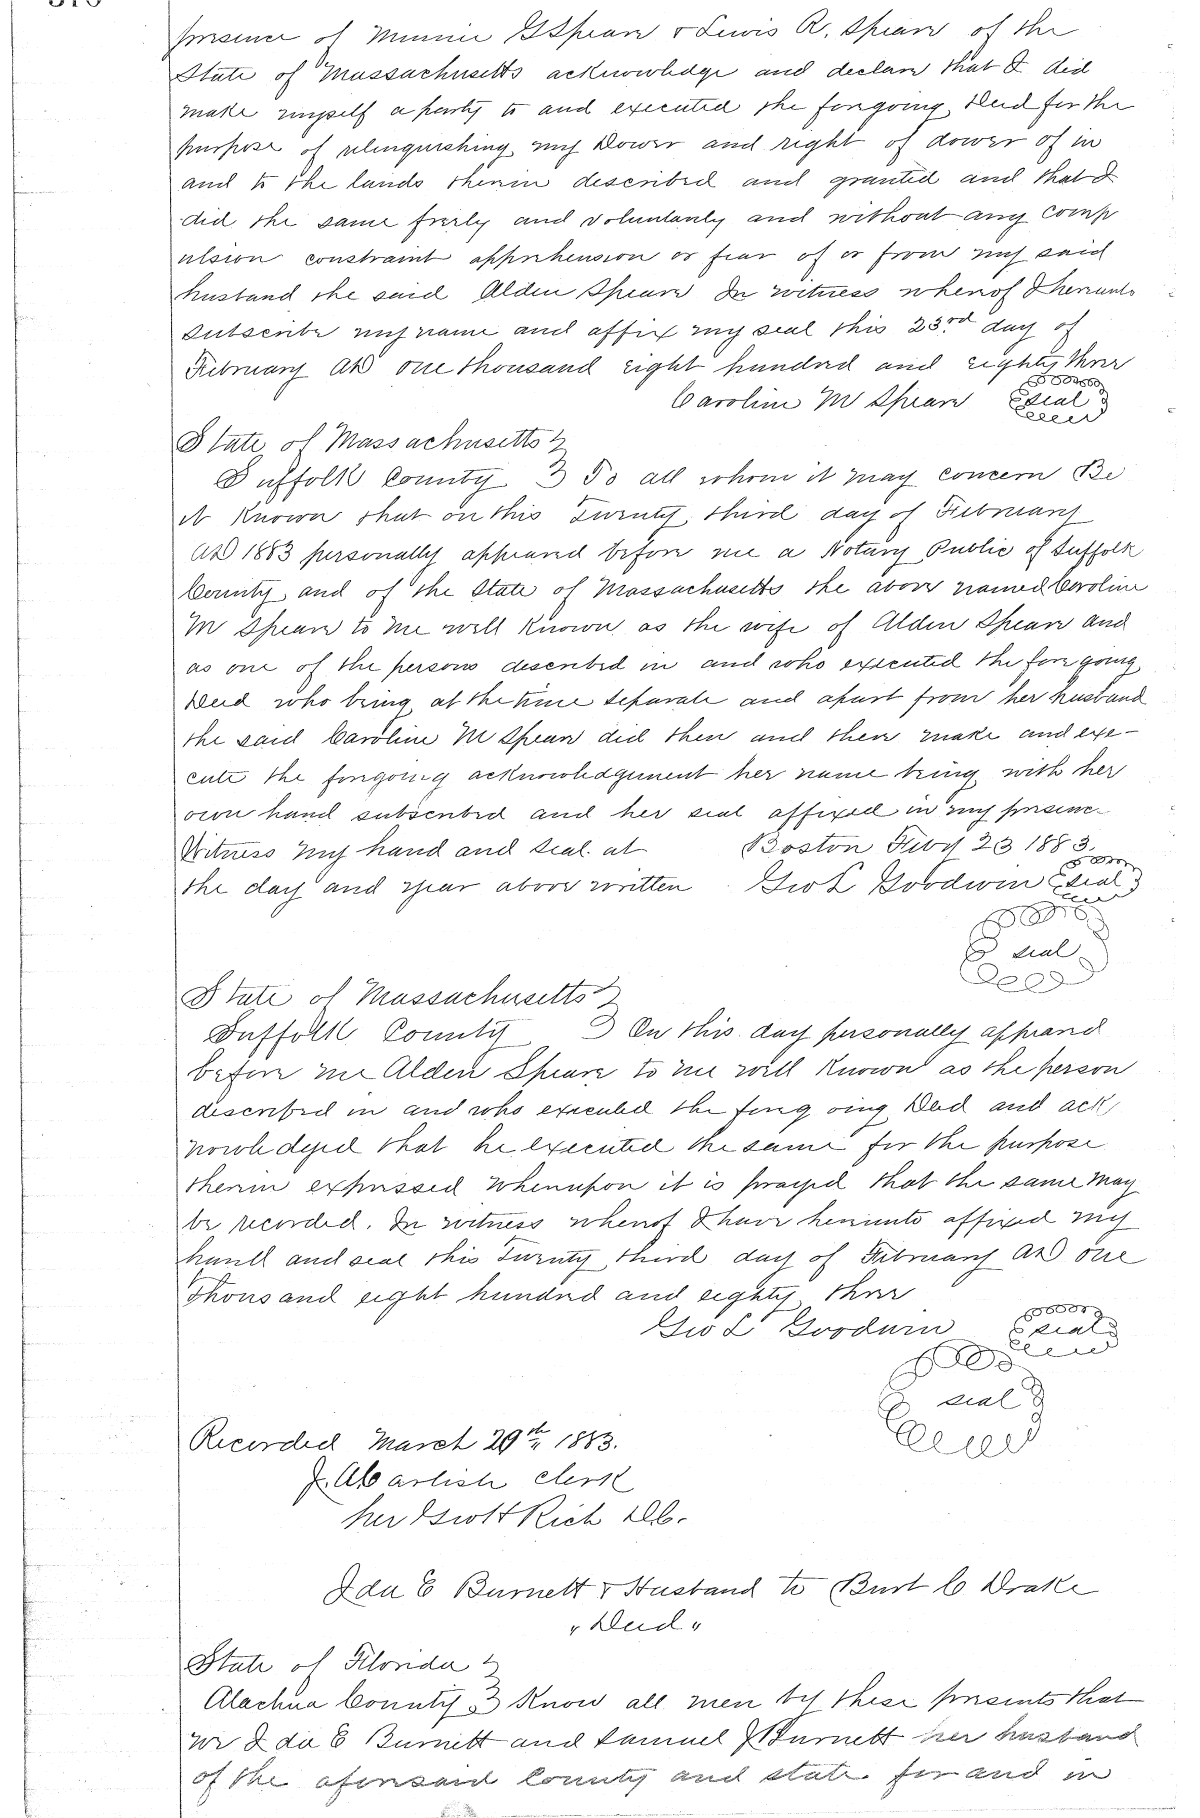 presence of Minnie G Spear & Lewis R. Spear of the
State of Massachusetts acknowledge and declare that I did
make myself a party to and executed the foregoing Deed for the
purpose of relinquishing my Dower and right of dower of in
and to the lands therein described and granted and that I
did the same freely and voluntarily and without any comp
ulsion constraint apprehension or fear of or from my said
husband the said Alden Spear In witness whereof I hereunto
Subscribe my name and affix my seal this 23rd day of
February AD one thousand eight hundred and eighty three
Caroline M Spear seal
State of Massachusetts
Suffolk County To all whom it may concern Be
it Known that on this Twenty third day of February
AD 1883 personally appeared before me a Notary Public of Suffolk
County and of the State of Massachusetts the above named Caroline
M Spear to me well known as the wife of Alden Spear and
as one of the persons described in and who executed the foregoing
Deed who being at the time separate and apart from her husband
the said Caroline M Spear did then and there make and exe-
cute the foregoing acknowledgement her name being with her
own hand subscribed and her seal affixed in my presence
Witness my hand and seal at Boston Feby 23 1883.
the day and year above written Geo L Goodwin seal
seal
State of Massachusetts
Suffolk County On this day personally appeared
before me Alden Spear to me well known as the person
described in and who executed the foregoing Deed and ack
nowledged that he executed the same for the purpose
therein expressed whereupon it is prayed that the same may
be recorded. In witness whereof I have hereunto affixed my
hand and seal this Twenty third day of February AD one
Thousand eight hundred and eighty three
Geo L Goodwin seal
seal
Recorded March 29th 1883.
J. A Carlisle clerk
per Rich DC.
Ida E Burnett & Husband to Burt C Drake
"Deed"
State of Florida
Alachua County Know all men by these presents that
we Ida E Burnett and Samuel J Burnett her husband
of the aforesaid County and state for and in